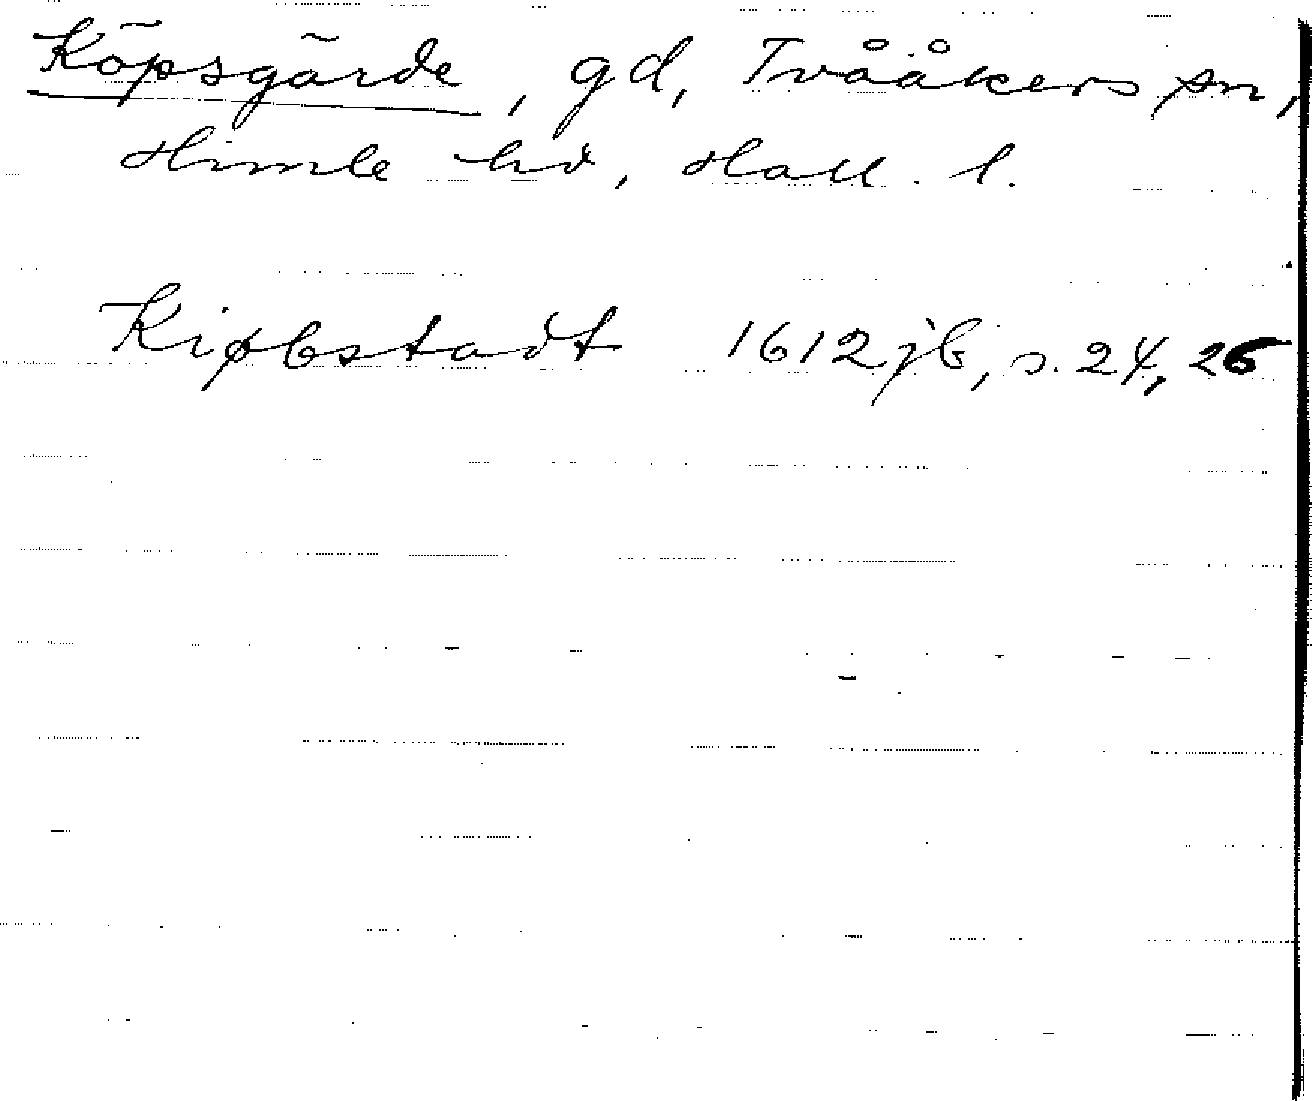 Köpsgärde, gd, Tvååkers sn,
Himle hd, Hall. l.
Kiøbstadt 1612 jb, s. 24, 26